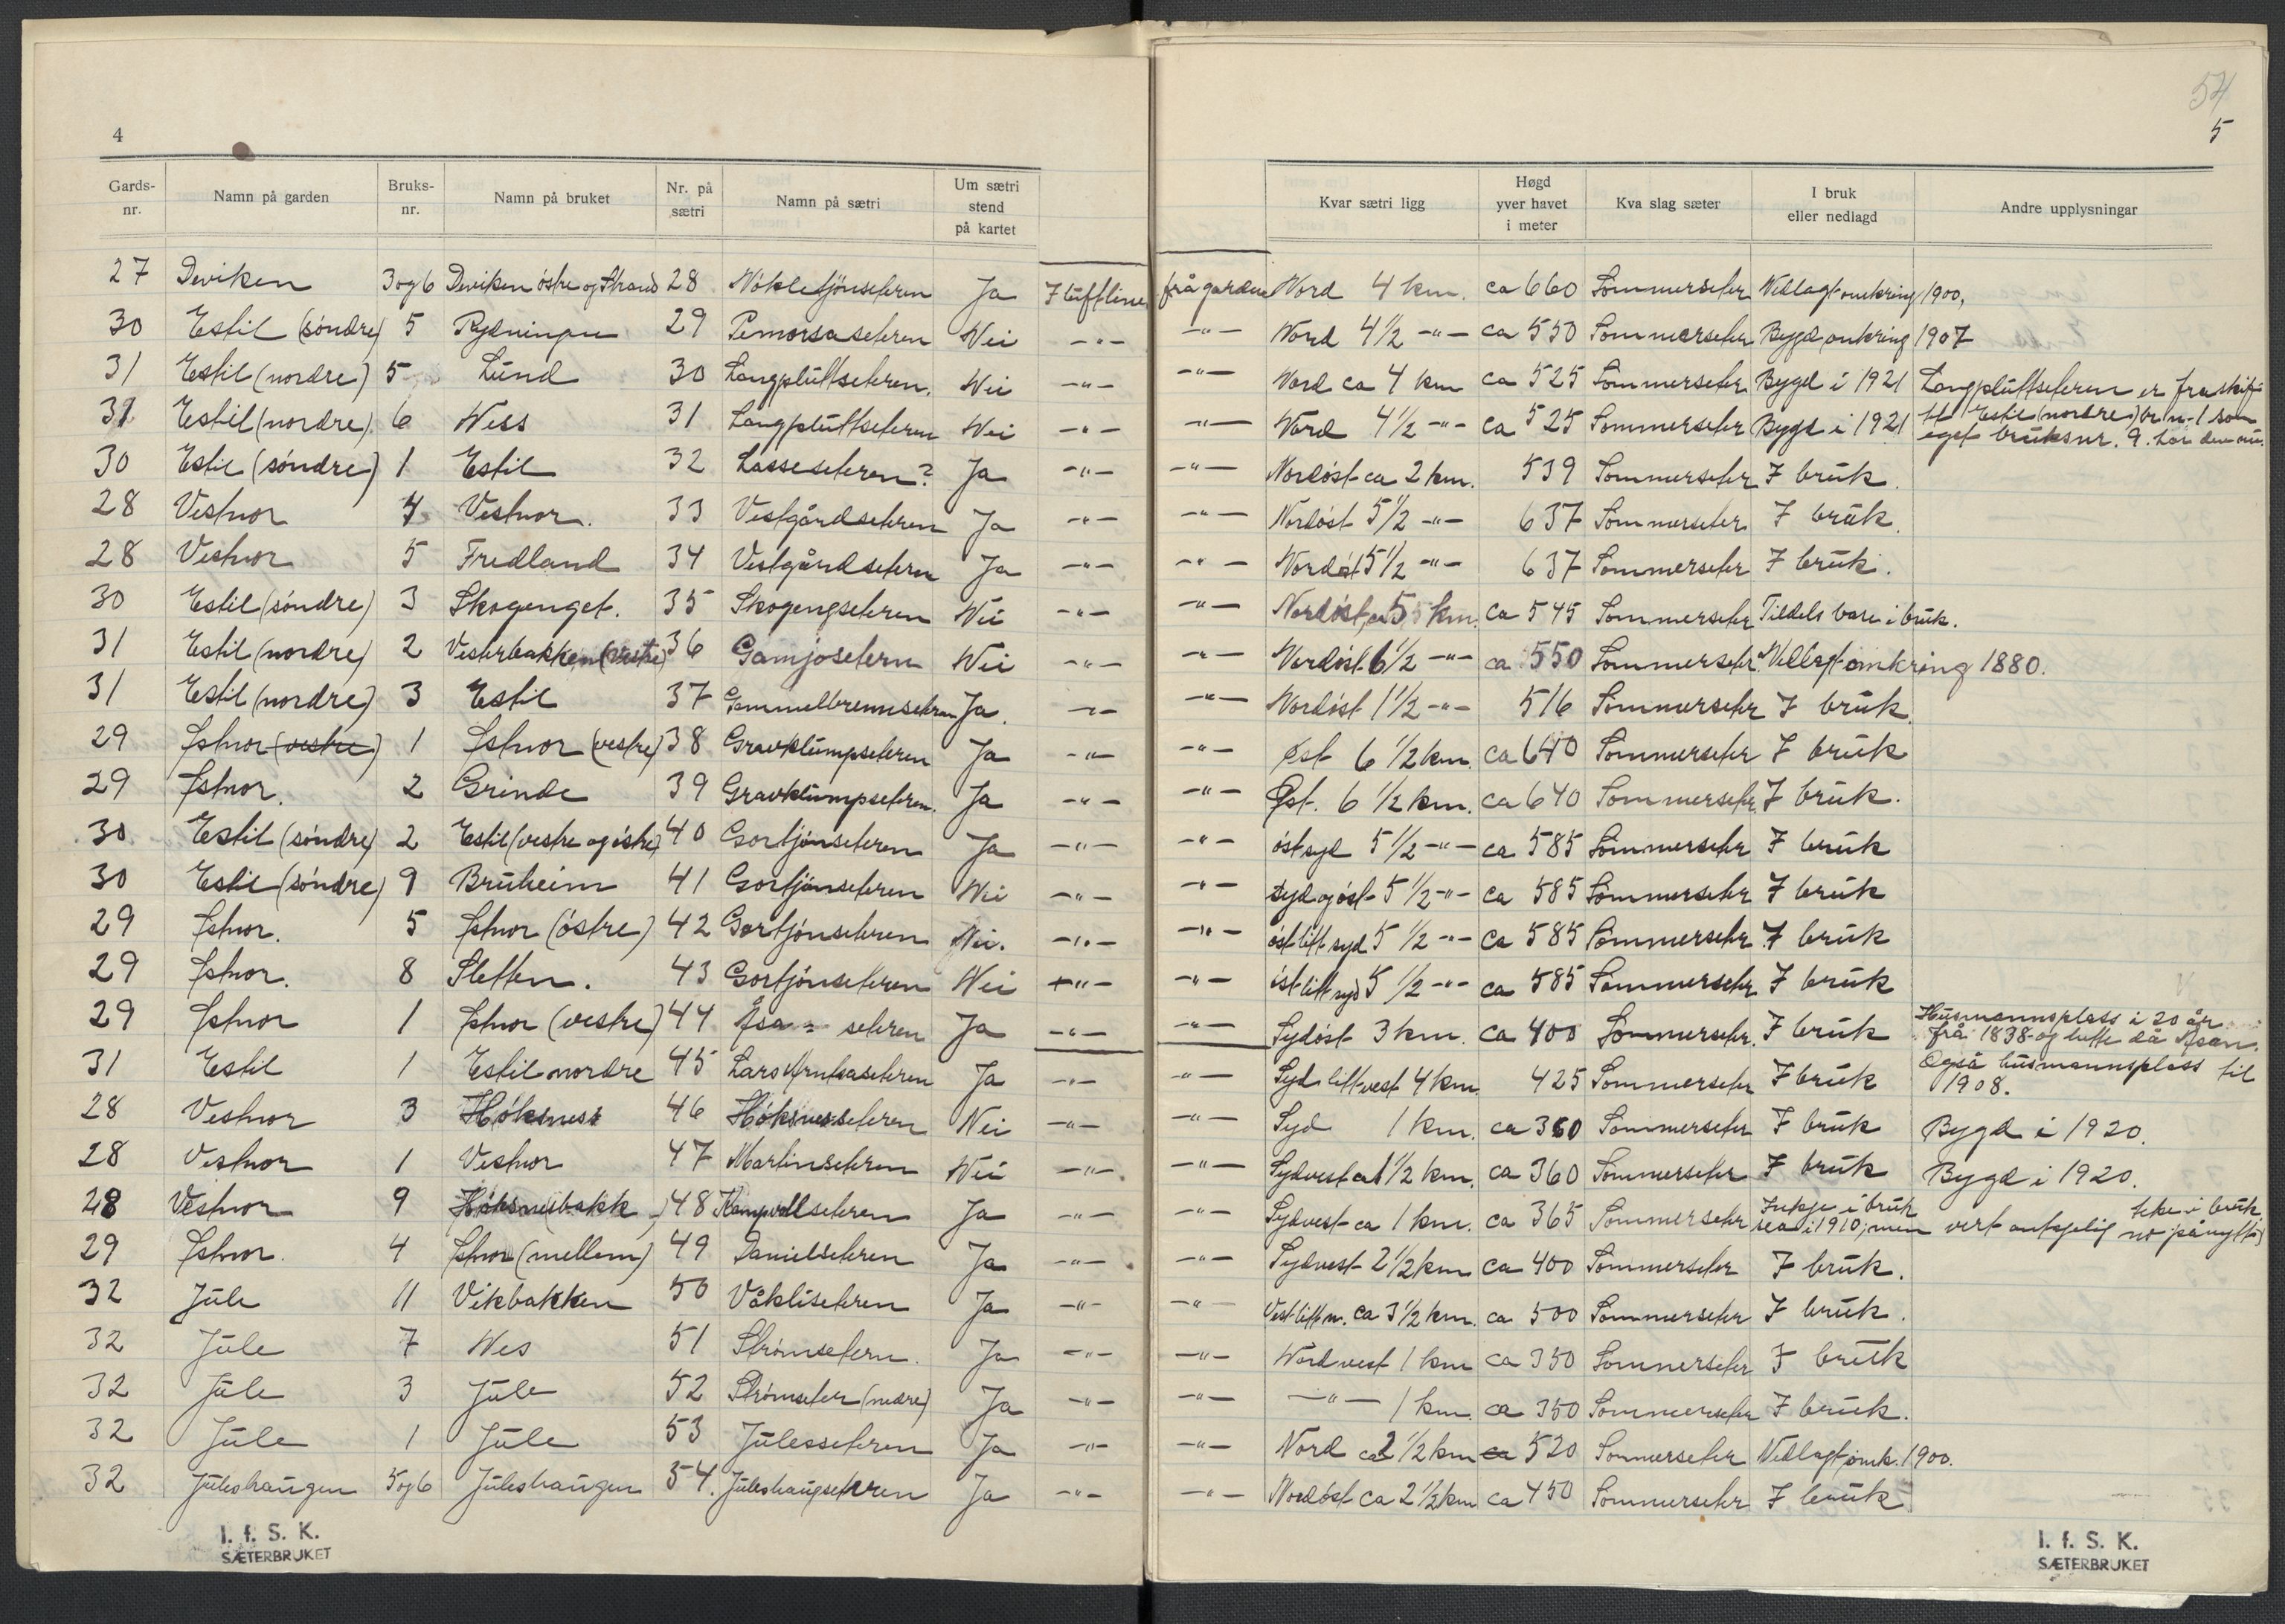 4
54
5
Gards-nr. Namn på garden Bruks-nr. Namn på bruket Nr. på sætri Namn på sætri Um sætri stend på kartet Kvar sætri ligg Høgd yver havet i meter Kva slag sæter I bruk eller nedlagd Andre upplysningar
27 Deviken 3og6 Deviken östre og Strand 28 Nökletjönseteren Ja I luftline frå gardene Nord 4 km. ca 660 Sommerseter Nedlagt omkring 1900.
30 Estil (söndre) 5 Rydningen 29 Pemorsaseteren Nei -"- -"- Nord 4 1/2 -"- ca 550 Sommerseter Bygd omkring 1907
31 Estil (nordre) 5 Lund 30 Langpluttseteren. Nei -"- -"- Nord ca 4 km ca 525 Sommerseter Bygd i 1921 Langpluttseteren er fraskift
31 Estil (nordre) 6 Ness 31 Langpluttseteren Nei -"- -"- Nord 4 1/2 -"- ca 525 Sommerseter Bygd i 1921 Estil (nordre) br. nr. 1 som
eget bruksnr. 9.
30 Estil (söndre) 1 Estil 32 Lasseseteren? Ja -"- -"- Nordöst ca 2 km. 539 Sommerseter I bruk.
28 Vestnor 4 Vestnor. 33 Vestgårdseteren Ja -"- -"- Nordöst 5 1/2 -"- 637 Sommerseter I bruk.
28 Vestnor 5 Fredland 34 Vestgårdsetern Ja -"- -"- Nordöst 5 1/2 -"- 637 Sommerseter I bruk.
30 Estil (söndre) 3 Skogenget. 35 Skogengseteren Nei -"- -"- Nordöst ca 5 km. ca 545 Sommerseter Tildels bare i bruk.
31 Estil (nordre) 2 Vesterbakken (vestre) 36 Gamjosetern Nei -"- -"- Nordöst 6 1/2 -"- ca 550 Sommerseter Nedlagt omkring 1880.
31 Estil (nordre) 3 Estil 37 Gammelbrennseteren Ja. -"- -"- Nordöst 1 1/2 -"- 516 Sommerseter I bruk.
29 Østnor (vestre) 1 Østnor (vestre) 38 Gravklumpseteren Ja -"- -"- Øst 6 1/2 km. ca 640 Sommerseter I bruk
29 Østnor. 2 Grinde 39 Gravklumpseteren. Ja -"- -"- Øst. 6 1/2 km. ca 640 Sommerseter I bruk.
30 Estil (söndre) 2 Estil (vestre og östre) 40 Gortjönseteren Ja -"- -"- östsyd 5 1/2 -"- ca 585 Sommerseter I bruk
30 Estil (söndre) 9 Bruheim 41 Gortjönseteren Nei -"- -"- syd og öst 5 1/2 -"- ca 585 Sommerseter I bruk
29 Østnor. 5 Østnor (östre) 42 Gortjönseteren Nei. -"- -"- öst litt syd 5 1/2 -"- ca 585 Sommerseter I bruk
29 Østnor. 8 Sletten. 43 Gortjönseteren Nei -"- -"- öst litt syd 5 1/2 -"- ca 585 Sommerseter I bruk
29 Østnor 1 Østnor (vestre) 44 Åsa - seteren Ja -"- -"- Sydöst 3 km. ca 400 Sommerseter. I bruk Husmannsplass i 20 år
frå 1838 og hette då Åsan.
31 Estil 1 Estil nordre 45 Lars Arntsaseteren Ja -"- -"- Syd litt vest 4 km. 425 Sommerseter I bruk Også husmannsplass til
1908.
28 Vestnor 3 Höksness 46 Höksnesseteren Nei -"- -"- Syd 1 km. ca 360 Sommerseter I bruk Bygd i 1920.
28 Vestnor 1 Vestnor 47 Martinseteren Nei -"- -"- Sydvest ca 1 1/2 km. ca 360 Sommerseter I bruk Bygd i 1920.
28 Vestnor 9 Höksnesbakk 48 Kampvollseteren Ja -"- -"- Sydvest ca 1 km. ca 365 Sommerseter Inkje i bruk
sea i 1910, men vert antagelig teke i bruk no på nytt.
29 Østnor. 4 Østnor (mellem) 49 Danielseteren Ja -"- -"- Sydvest 2 1/2 km ca 400 Sommerseter I bruk.
32 Jule 11 Vikbakken 50 Våkliseteren Ja -"- -"- Vest litt n. ca 3 1/2 km. ca 500 Sommerseter I bruk.
32 Jule 7 Nes 51 Strömsetern. Ja -"- -"- Nordvest 1 km ca 350 Sommerseter I bruk
32 Jule 3 Jule 52 Strömseter (nedre) Ja -"- -"- -"- 1 km. ca 350 Sommerseter I bruk.
32 Jule 1 Jule 53 Julesseteren Ja -"- -"- Nord ca 2 1/2 km ca 520 Sommerseter Nedlagt omk. 1900.
32 Juleshaugen 5og6 Juleshaugen 54. Juleshaugseteren Ja -"- -"- Nordöst ca 2 1/2 km ca 450 Sommerseter I bruk
I. f. S. K.
SÆTERBRUKET
I. f. S. K.
SÆTERBRUKET